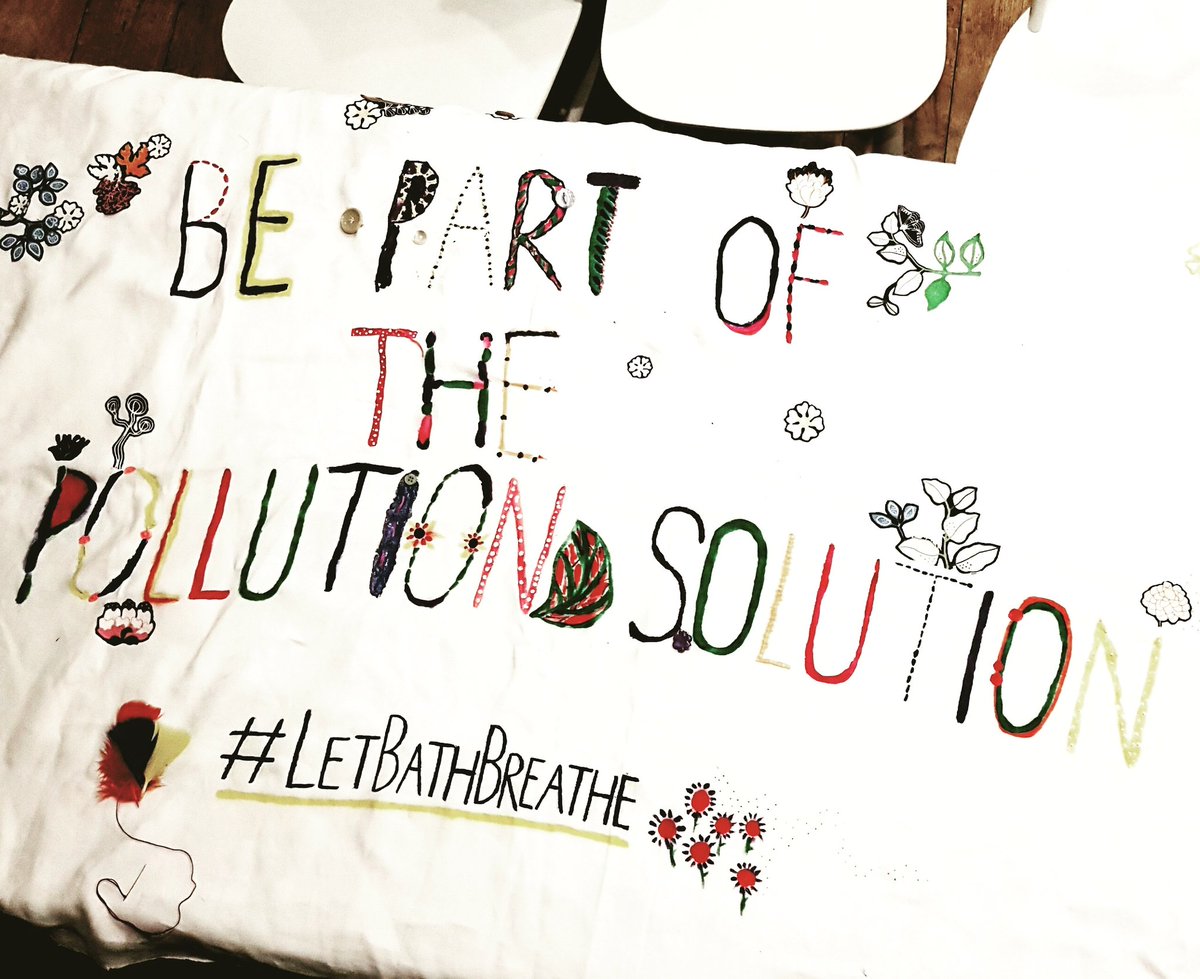 BE PART OF
THE
POLLUTION SOLUTION
#LETBATHBREATHE